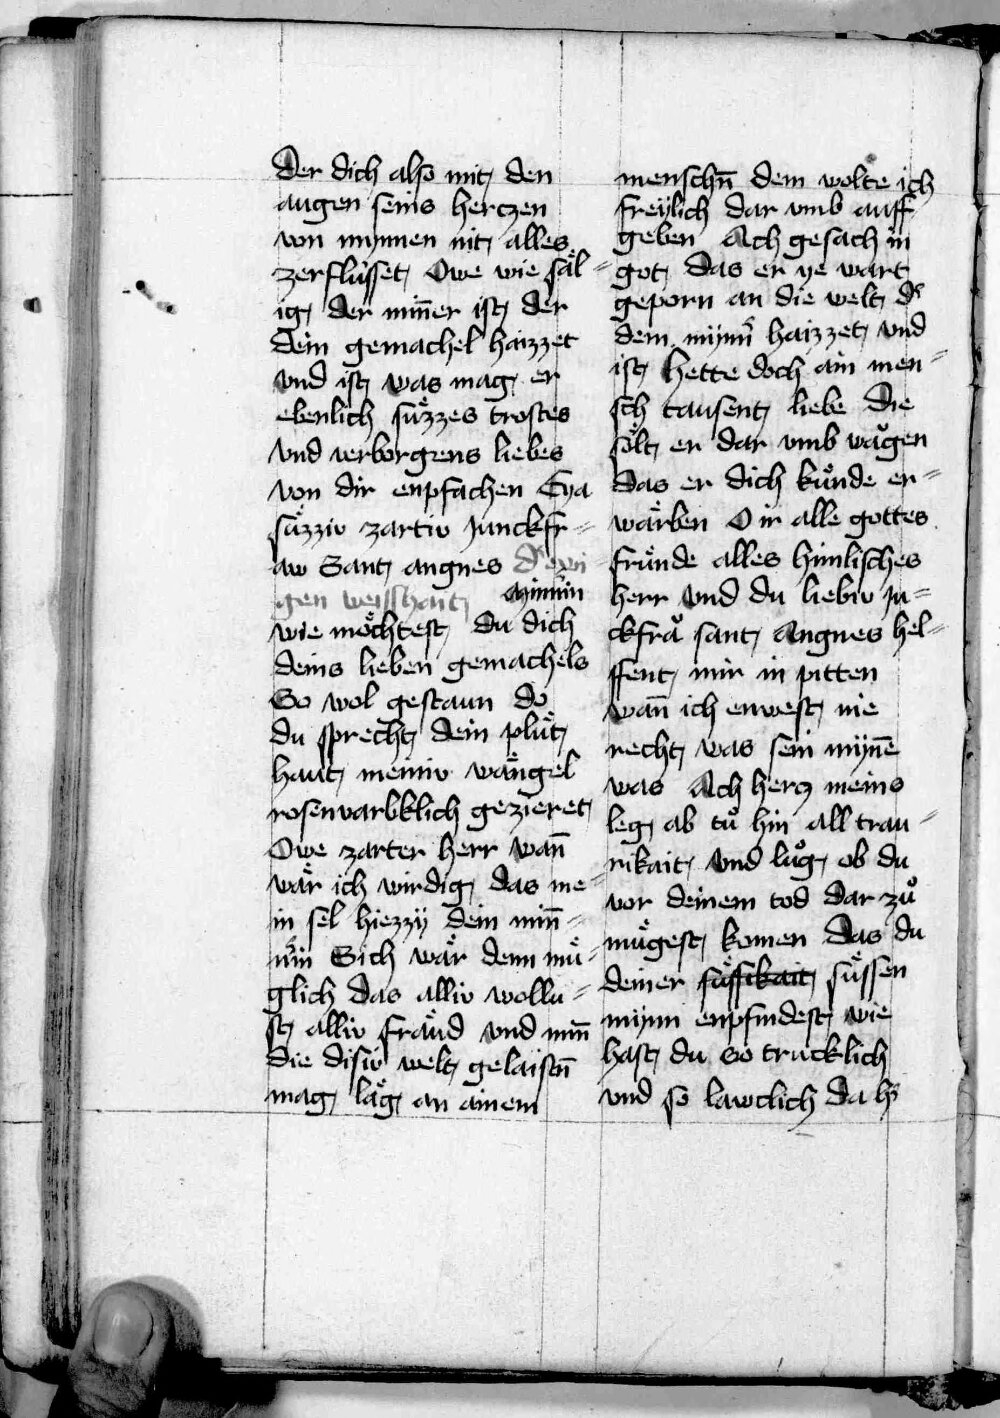 der dich also mit den
augen seins herczen
von mynnen nit alles
zerflüsset Owe wie säl=
ig der min̄er ist der
dein gemachel haizzet
vnd ist was mag er
ebenlich süzzes trostes
vnd verborgens liebes
von dir enpfachen Eya
süzziv zartiv Junckfr=
aw Sant angnes d' ewi
gen weisshait Minn'in
wie möchtest du dich
deins lieben gemachels
So wol gestaun do
du sprecht dein plůt
haut meiniv wängel
rosenvarbklich gezieret
Owe zarter herr wan̄
wär ich wirdig das me=
in sel hiezzy dein min̄=
n'in Sich wär denn mü=
glich das alliv wollu=
st alliv fräud vnd min̄
die disiv welt gelaistn̄
mag läg an ainem
menschn̄ dem wolte ich
freylich dar vmb auff
geben Ach gesach in
got das er ye wart
geporn an die welt d'
dem mynn' haizzet vnd
ist hette doch ain men=
sch tausent liebe die
sölt er dar vmb wägen
das er dich künde er=
wärben O ir alle gottes
fründe alles himlisches
herr vnd du liebiv Ju=
ckfrå sant Angnes hel=
ffent mir in pitten
wan̄ ich enwest nie
recht was sein mynē
was Ach hercz meins
leg ab tů hin all trau=
rikait vnd lůg ob du
vor deinem tod dar zů
mügest komen das du
deiner süssikait süssen
mynn enpfindest wie
hast du so trucklich
vnd so lawclich da h'